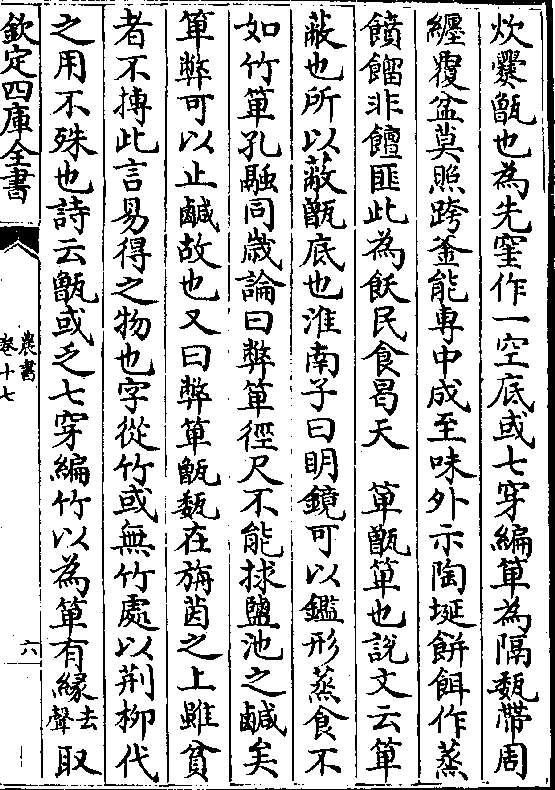 炊爨甑也為先窐作一空底或七穿編箄為隔甑帶周
纏覆盆莫照跨釜能專中成至味外示陶埏餅餌作蒸
饙餾非饘匪此為飫民食曷天　箄甑箄也說文云箄
蔽也所以蔽甑底也淮南子曰明鏡可以鑑形蒸食不
如竹箄孔融同歲論曰弊箄徑尺不能捄鹽池之鹹矣
箄弊可以止鹹故也又曰弊箄甑甎在旃茵之上雖貧
者不摶此言易得之物也字從竹或無竹處以荆柳代
之用不殊也詩云甑或乏七穿編竹以為箄有緣去聲取
欽定四庫全書
農書
卷十七
六